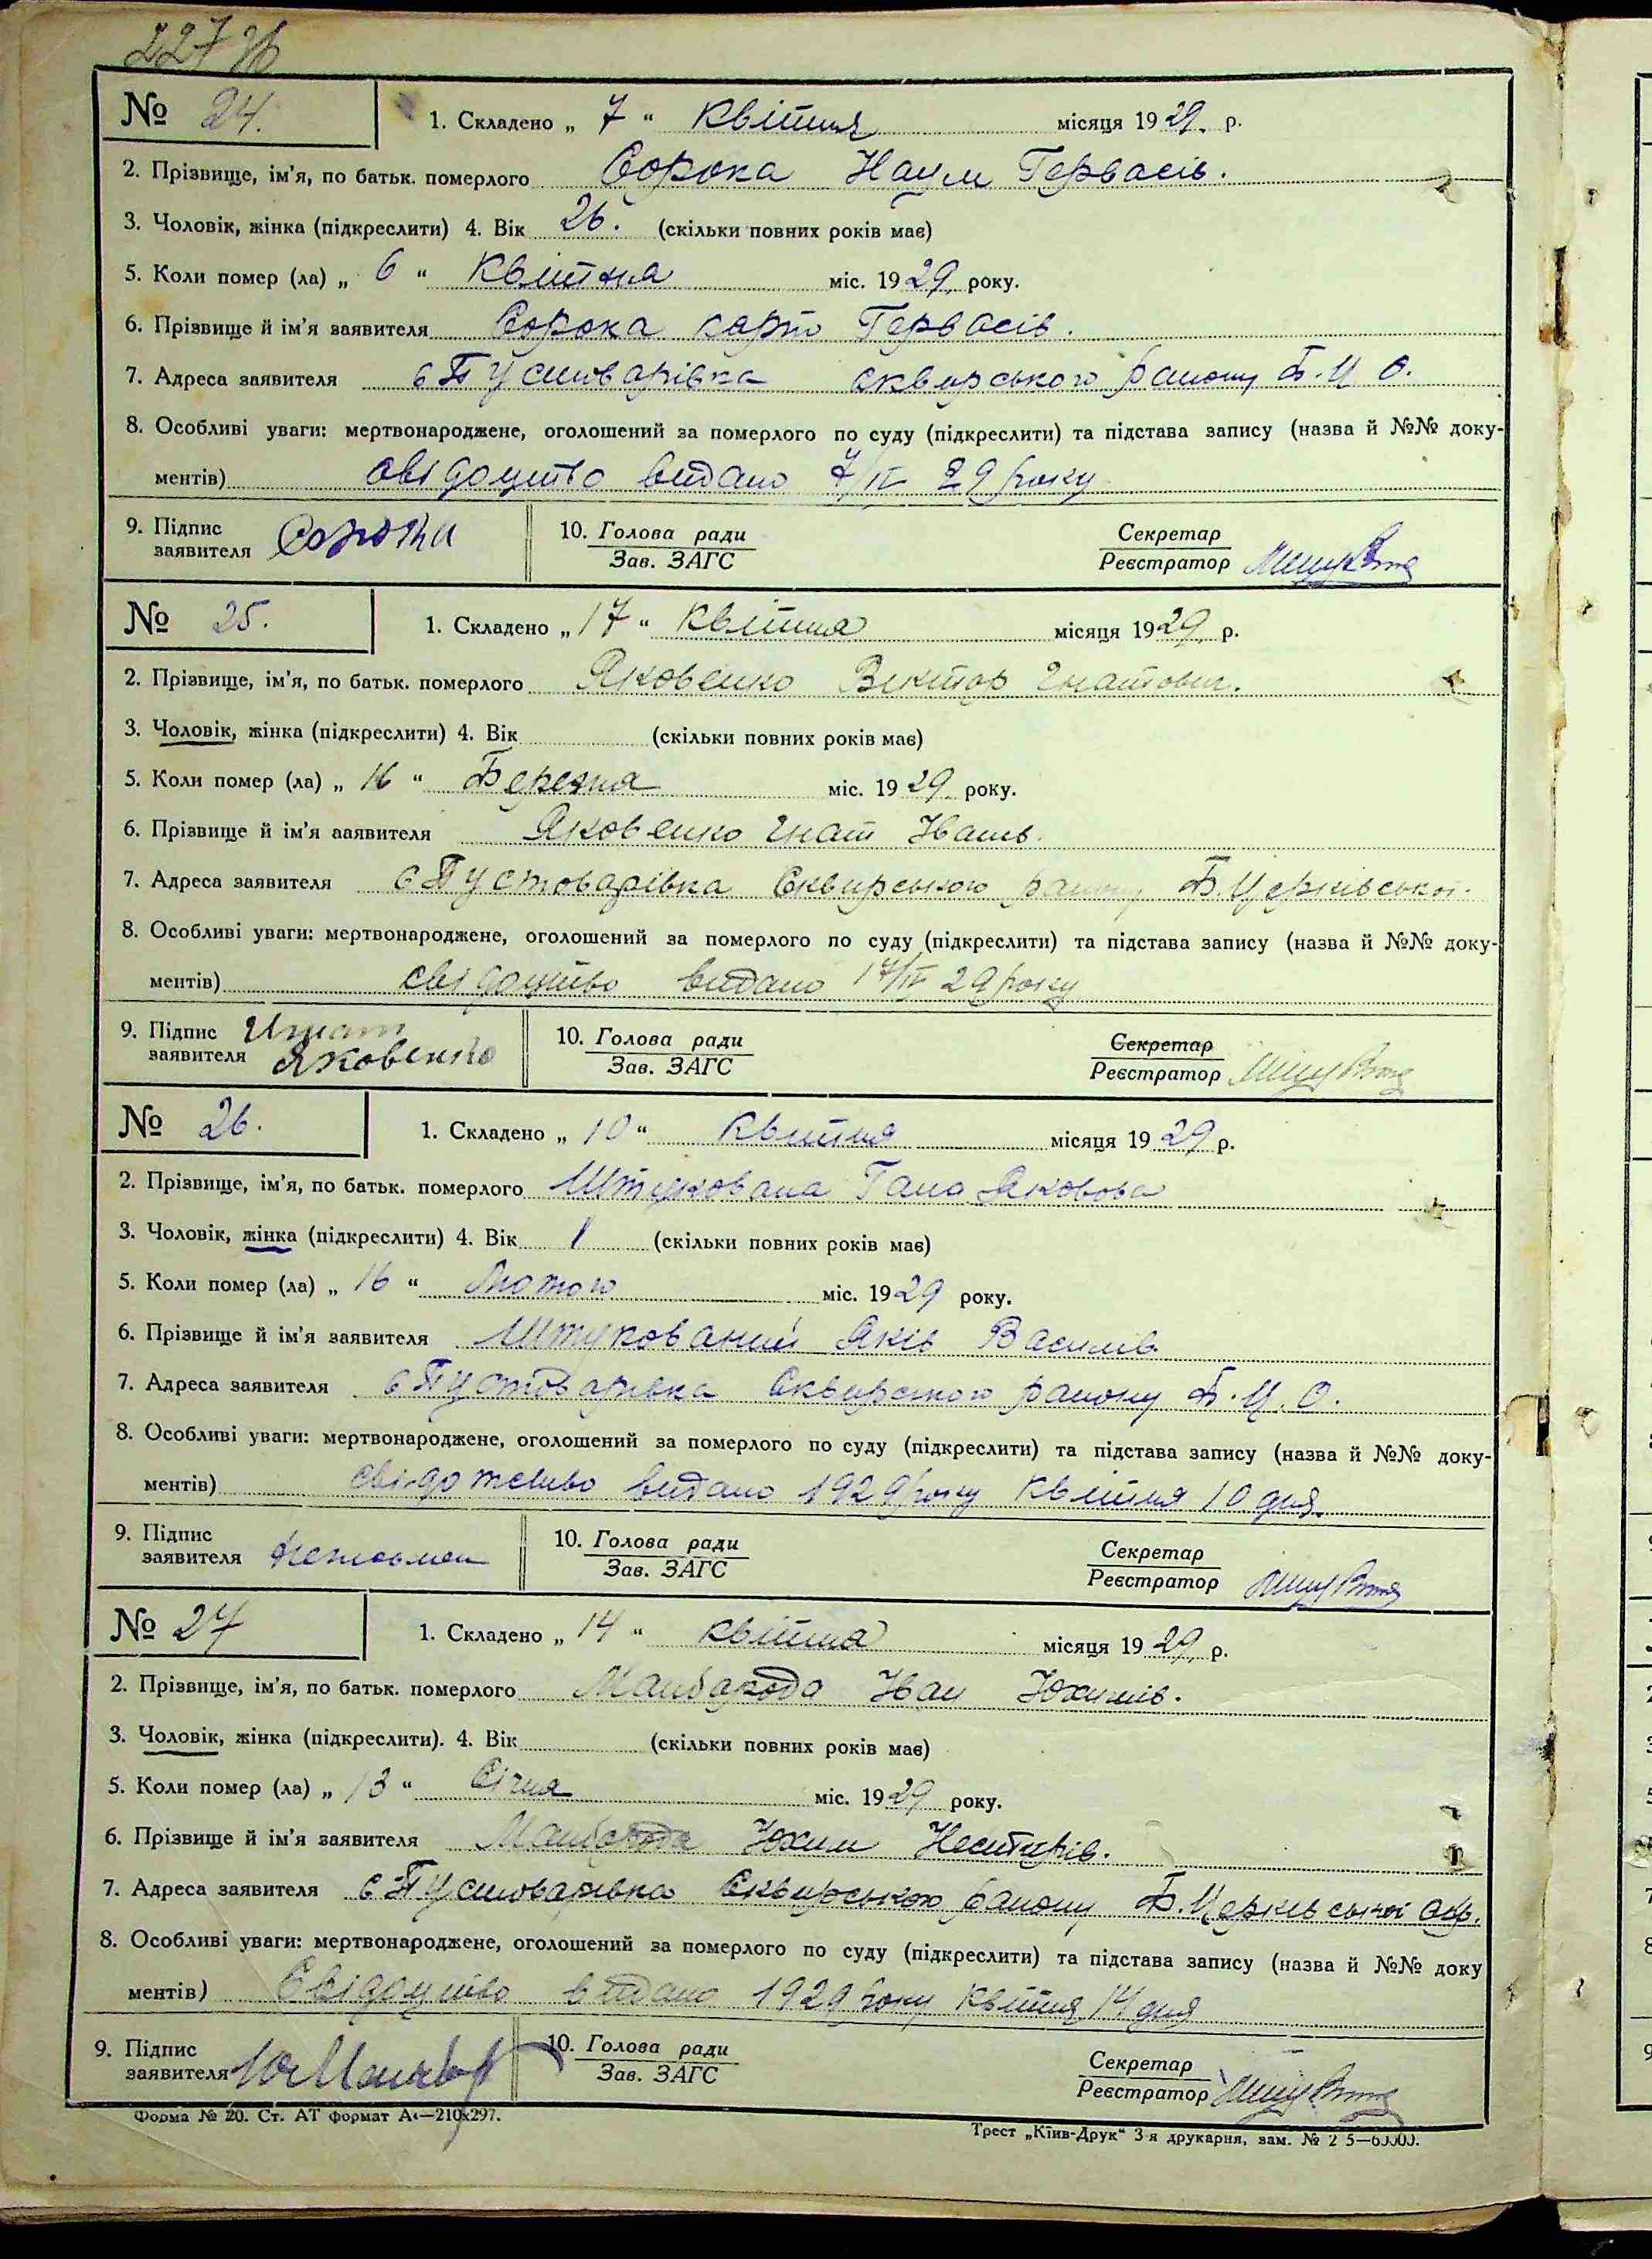 № 24. 1. Складено „ 7 “ Квітня місяця 1929. р.
2. Прізвище, ім'я, по батьк. померлого Сорока Наум Гервасів.
3. Чоловік, жінка (підкреслити) 4. Вік 26. (скільки повних років має)
5. Коли помер (ла) „ 6 “ Квітня міс. 1929, року.
6. Прізвище й ім'я заявителя Сорока карпо Гервасів.
7. Адреса заявителя с Пустоварівка сквирського району Б. Ц О.
8. Особливі уваги: мертвонароджене, оголошений за померлого по суду (підкреслити) та підстава запису (назва й №№ доку-
ментів) свідоцтво видано 7/IV 29 року
9. Підпис 10. Голова ради Секретар
заявителя Сорока Зав. ЗАГС Реєстратор
№ 25. 1. Складено „ 17 “ Квітня місяця 1929, р.
2. Прізвище, ім'я, по батьк. померлого Яковенко Віктор Гнатович.
3. Чоловік, жінка (підкреслити) 4. Вік (скільки повних років має)
5. Коли помер (ла) „ 16 “ Березня міс. 1929. року.
6. Прізвище й ім'я заявителя Яковенко Гнат Іванів.
7. Адреса заявителя с Пустоварівка Сквирського району Б. Церківської.
8. Особливі уваги: мертвонароджене, оголошений за померлого по суду (підкреслити) та підстава запису (назва й №№ доку-
ментів) свідоцтво видано 17/IV 29 року
9. Підпис Игнат 10. Голова ради Секретар
заявителя Яковенко Зав. ЗАГС Реєстратор
№ 26. 1. Складено „ 10 “ Квітня місяця 1929 р.
2. Прізвище, ім'я, по батьк. померлого Штукована Гана Яковова
3. Чоловік, жінка (підкреслити) 4. Вік 1 (скільки повних років має)
5. Коли помер (ла) „ 16 “ Лютого міс. 1929 року.
6. Прізвище й ім'я заявителя Штукований Яків Василів
7. Адреса заявителя с Пустоварівка Сквирського району Б. Ц. О.
8. Особливі уваги: мертвонароджене, оголошений за померлого по суду (підкреслити) та підстава запису (назва й №№ доку-
ментів) видано 1929 року Квітня 10 дня.
9. Підпис 10. Голова ради Секретар
заявителя Зав. ЗАГС Реєстратор
№ 27 1. Складено „ 14 “ квітня місяця 1929, р.
2. Прізвище, ім'я, по батьк. померлого Майборода Іван Юхимів.
3. Чоловік, жінка (підкреслити). 4. Вік (скільки повних років має)
5. Коли помер (ла) „ 13 “ Січня міс. 1929 року.
6. Прізвище й ім'я заявителя Майборода Юхим Неститрів.
7. Адреса заявителя с Пустоварівка Сквирського району Б. Церківської окр.
8. Особливі уваги: мертвонароджене, оголошений за померлого по суду (підкреслити) та підстава запису (назва й №№ доку
ментів) Свідоцтво видано 1929 року Квітня 14 дня
9. Підпис 10. Голова ради Секретар
заявителя Зав. ЗАГС Реєстратор
Форма № 20. Ст. АТ формат А4—210x297.
Трест „Київ-Друк“ 3 я друкарня, зам. №